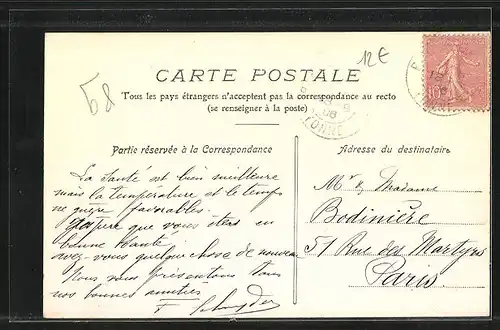 12€
58
CARTE POSTALE
Tous les pays étrangers n'acceptent pas la correspondance au recto
(se renseigner à la poste)
Partie réservée à la Correspondance
La santé est bien meilleure
mais la température et le temps
ne guère favorables.
J'espère que vous êtes en
bonne santé
avez-vous quelque chose de nouveau
Nous vous présentons tous
nos bonnes amitiés
F.
Adresse du destinataire
Mr & Madame
Bodinière
51 Rue des Martyrs
Paris
10
08